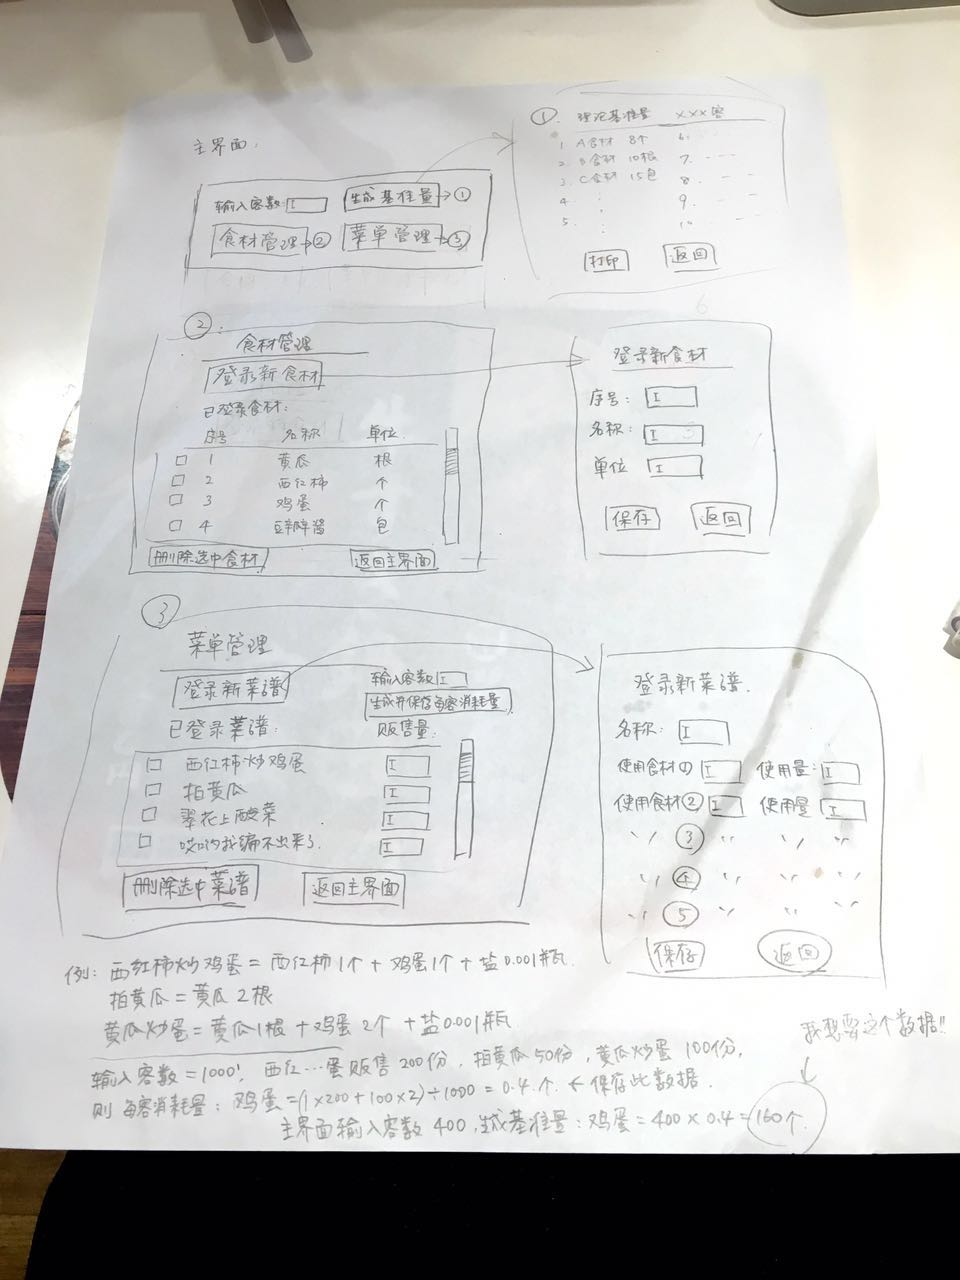 主界面:
输入客数: I
生成基准量→①
食材管理→②
菜单管理→③
① 理论基准量 XXX客
1 A食材 8个 6.
2. B食材 10根 7.
3. C食材 15包 8.
4. 9.
5. 10.
打印 返回
②:
食材管理
登录新食材
已登录食材:
序号 名称 单位
1 黄瓜 根
2 西红柿 个
3 鸡蛋 个
4 豆瓣酱 包
删除选中食材 返回主界面
登录新食材
序号: I
名称: I
单位 I
保存 返回
③
菜单管理
登录新菜谱 输入客数 I
生成并保存每客消耗量
已登录菜谱: 贩售量:
西红柿炒鸡蛋 I
拍黄瓜 I
翠花上酸菜 I
哎哟我编不出来了. I
删除选中菜谱 返回主界面
登录新菜谱.
名称: I
使用食材① I 使用量: I
使用食材② I 使用量 I
〃 ③ 〃 〃 〃
〃 ④ 〃 〃 〃
〃 ⑤ 〃 〃 〃
保存 返回
例: 西红柿炒鸡蛋 = 西红柿1个 + 鸡蛋1个 + 盐0.001瓶.
拍黄瓜 = 黄瓜2根
黄瓜炒蛋 = 黄瓜1根 + 鸡蛋2个 + 盐0.001瓶
我想要这个数据!!
输入客数 = 1000! 西红…蛋贩售200份, 拍黄瓜50份, 黄瓜炒蛋100份,
则每客消耗量: 鸡蛋 = (1×200+100×2)÷1000 = 0.4个. ← 保存此数据.
主界面输入客数400, 生成基准量: 鸡蛋 = 400×0.4 = 160个.